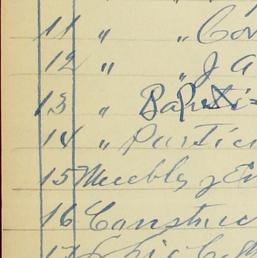 11 " " Con
12 " " J a
13 " Bautis
14 " Partic
15 Muebles y En
16 Construc
17